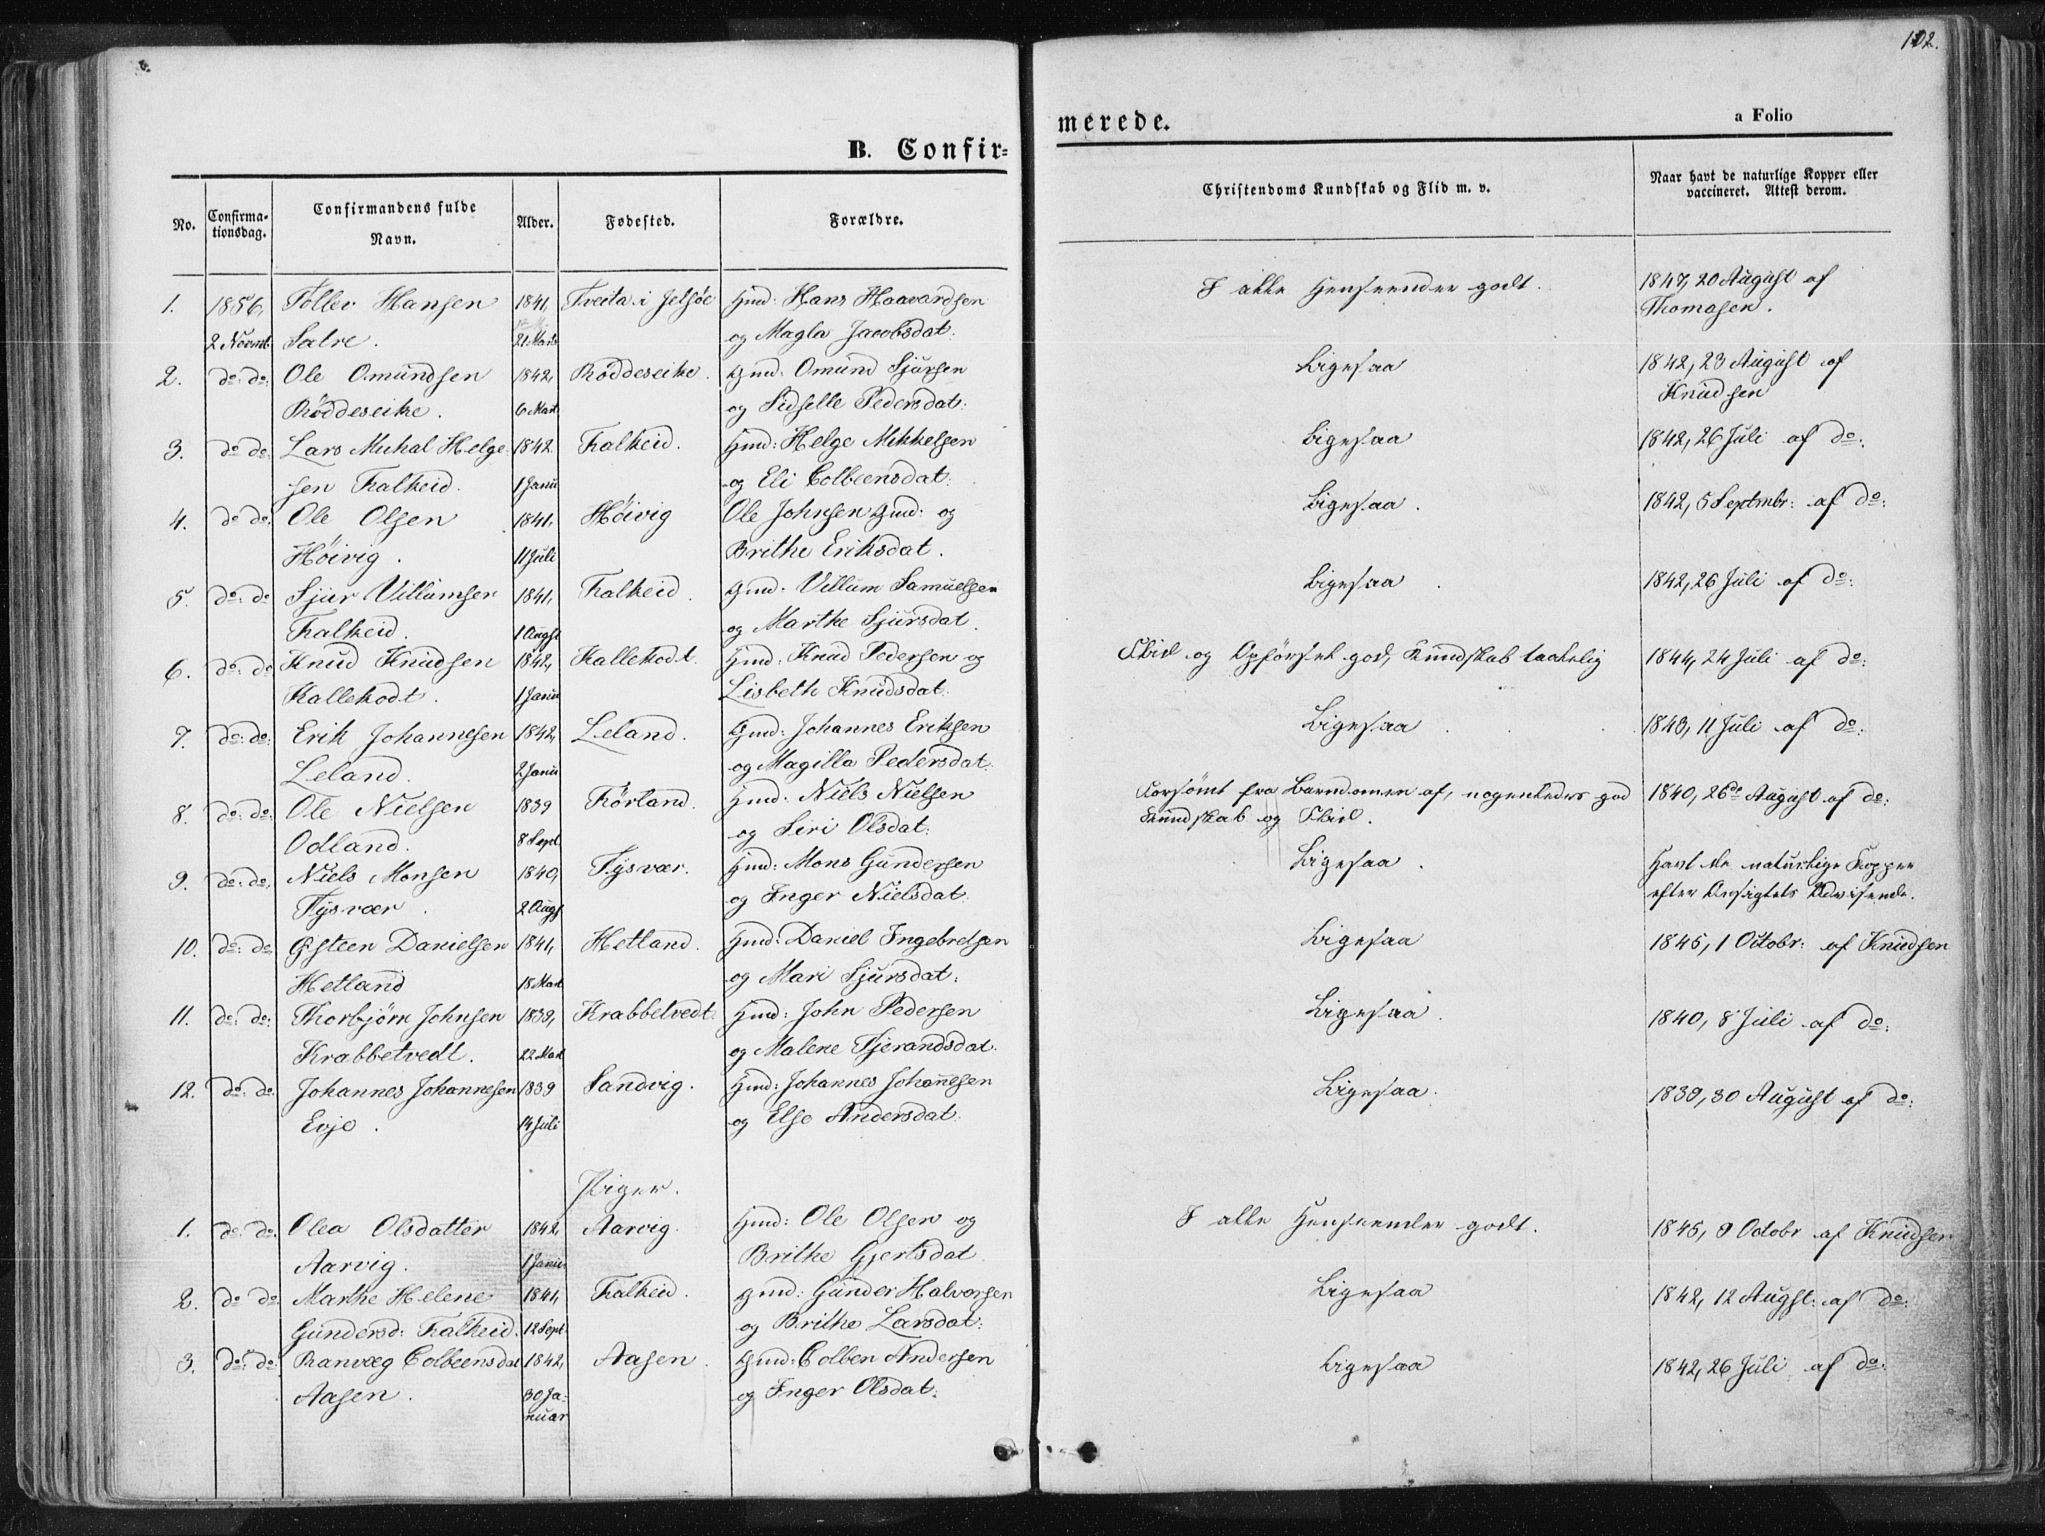 102.
B. Confir=
merede.
a Folio
No.
Confirma-
tionsdag.
Confirmandens fulde
Navn.
Alder.
Fødested.
Forældre.
Christendoms Kundskab og Flid m. v.
Naar havt de naturlige Kopper eller
vaccineret. Attest derom.
1. 1856, Tollev Hansen 1841, Tveita i Jelsöe Gmd: Hans Haavardsen I alle Henseender godt. 1847, 20 August af
2 Novmb. Satre. 21 Marts og Magla Jacobsdat. Thomasen.
2. do: do: Ole Omundsen 1842, Röddeseike. Gmd: Omund Sjursen Ligesaa 1842, 23 August af
Röddeseike. 6 Mart og Sidselle Pedersdat: Knudsen
3. do do: Lars Michal Helge- 1842 Falkeid. Gmd: Helge Mikkelsen Ligesaa 1842, 26 Juli af do:
sen Falkeid. 1 Janu og Eli Colbeensdat:
4. do do: Ole Olsen 1841, Höivig Ole Johnsen Gmd: og Ligesaa. 1842, 5 Septmbr: af do:
Höivig. 11 Juli Brithe Eriksdat.
5. do: do Sjur Villumsen 1841, Falkeid. Gmd: Villum Samuelsen Ligesaa. 1842, 26 Juli af do:
Falkeid. 1 Augst og Marthe Sjursdat.
6. do: do Knud Knudsen 1842, Kallekodt. Gmd: Knud Pedersen og Flid og Opförsel god, Kundskab taalelig 1844, 24 Juli af do:
Kallekodt. 1 Janu Lisbeth Knudsdat:
7. do: do: Erik Johannesen 1842, Leland. Gmd: Johannes Eriksen Ligesaa. 1843, 11 Juli af do:
Leland. 2 Janu og Magilla Pedersdat:
8. do: do: Ole Nielsen 1839 Förland. Gmd: Niels Nielsen Forsömt fra Barndommen af, nogenledes god 1840, 26de August af do:
Odland. 8 Sept og Siri Olsdat: Kundskab og Flid.
9. do: do. Niels Monsen 1840, Tysvær. Gmd: Mons Gundersen Ligesaa. Havt de naturlige Kopper
Tysvær. 2 Augst og Inger Nielsdat. efter Ansigtets Udvisende.
10. do: do: Østeen Danielsen 1841, Hetland. Gmd: Daniel Ingebretsen Ligesaa 1845, 1 Octobr: af Knudsen
Hetland 18 Mart og Mari Sjursdat:
11. do: do: Thorbjörn Johnsen 1839, Krabbetvedt. Gmd: John Pedersen Ligesaa. 1840, 8 Juli af do:
Krabbetvedt. 22 Mart og Malene Tjerandsdat.
12. do: do. Johannes Johannesen 1839 Sandvig. Gmd: Johannes Johannesen Ligesaa. 1839, 30 August af do:
Evje. 14 Juli og Else Andersdat:
Piger.
1. do: do. Olea Olsdatter 1842, Aarvig. Gmd: Ole Olsen og I alle Henseender godt. 1845, 9 Octobr af Knudsen
Aarvig. 1 Janu. Brithe Gjertsdat.
2. do do Marthe Helene 1841, Falkeid. Gmd: Gunder Halvorsen Ligesaa 1842, 12 Augst: af do:
Gundersd: Falkeid. 12 Sept og Brithe Larsdat:
3. do: do: Ranvæg Colbeensdat 1842, Aasen. Gmd: Colben Andersen Ligesaa 1842, 26 Juli af do:
Aasen. 30 Ja- og Inger Olsdat:
nuar